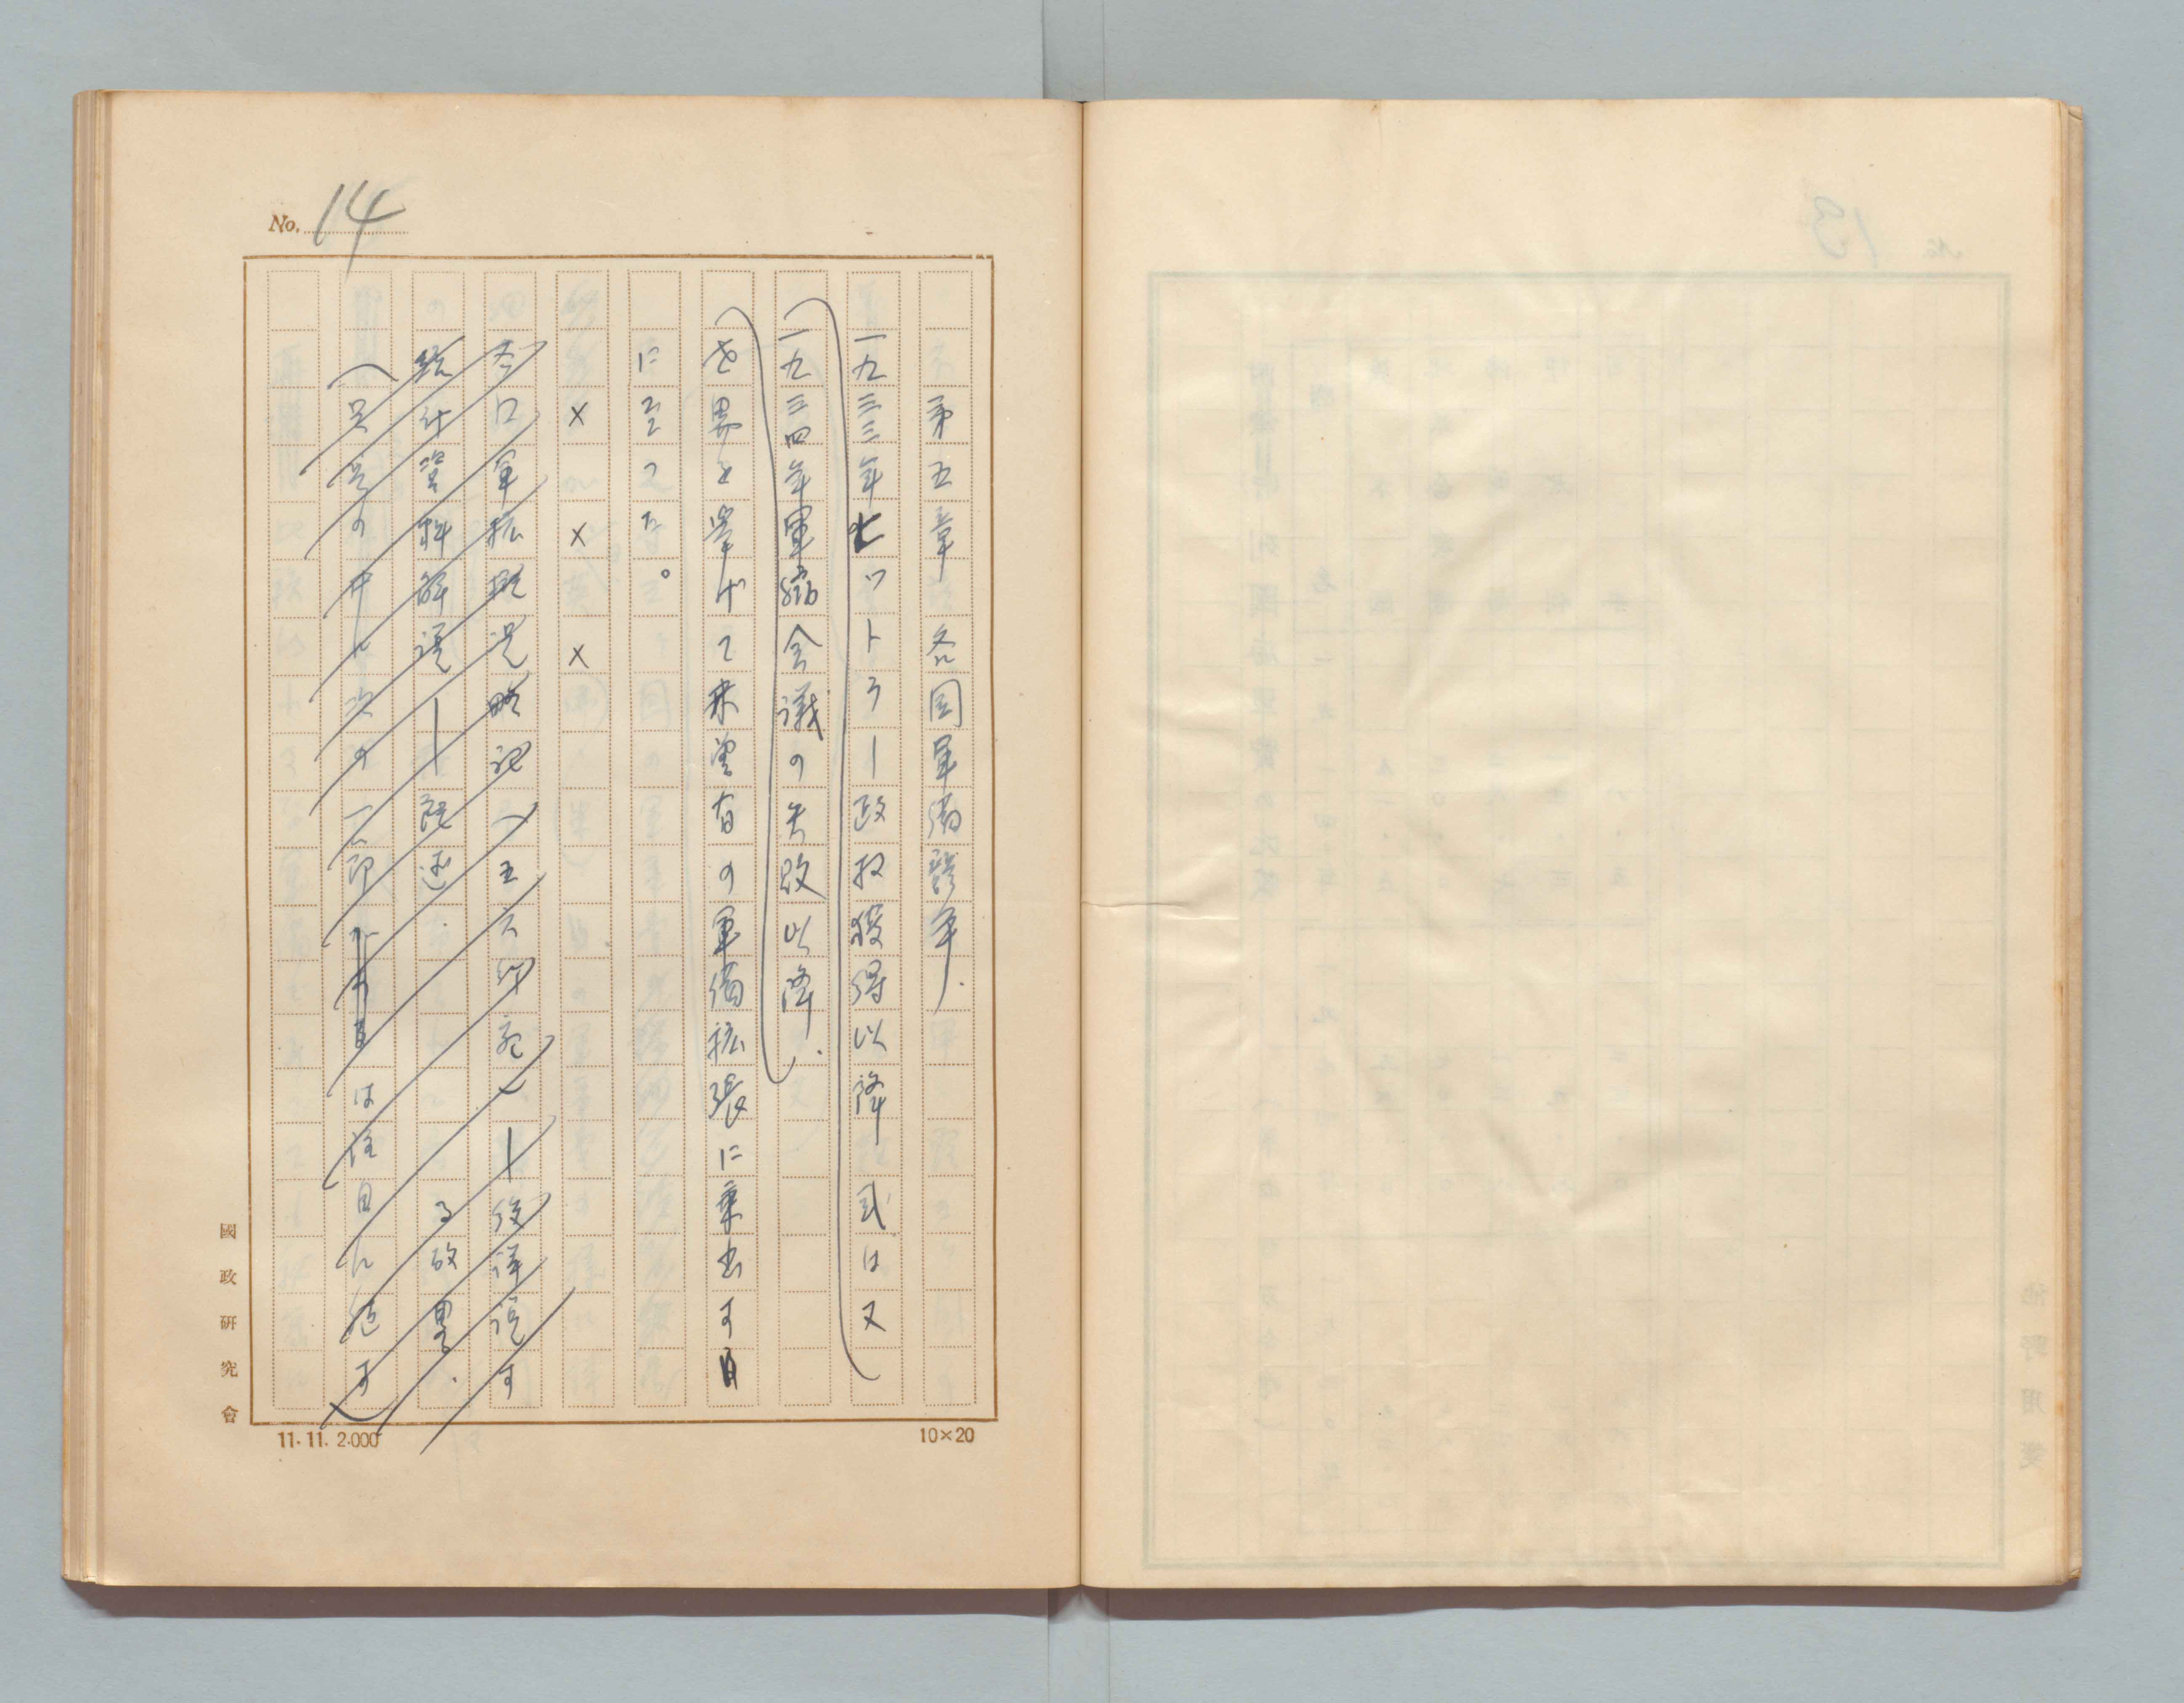 No. 14
第五章 各国軍備競争.
一九三三年ヒットラー政权獲得以降 或は又
一九三四年軍縮会議の失敗以降.
世界を挙げて未曽有の軍備拡張に乗出す
に至つた。
× × ×
各国軍拡概況略記(五六印刷)ー後詳説す
統計資料解説ー既述 る故略.
は注目に値す
國政研究會
11.11. 2.000
10×20